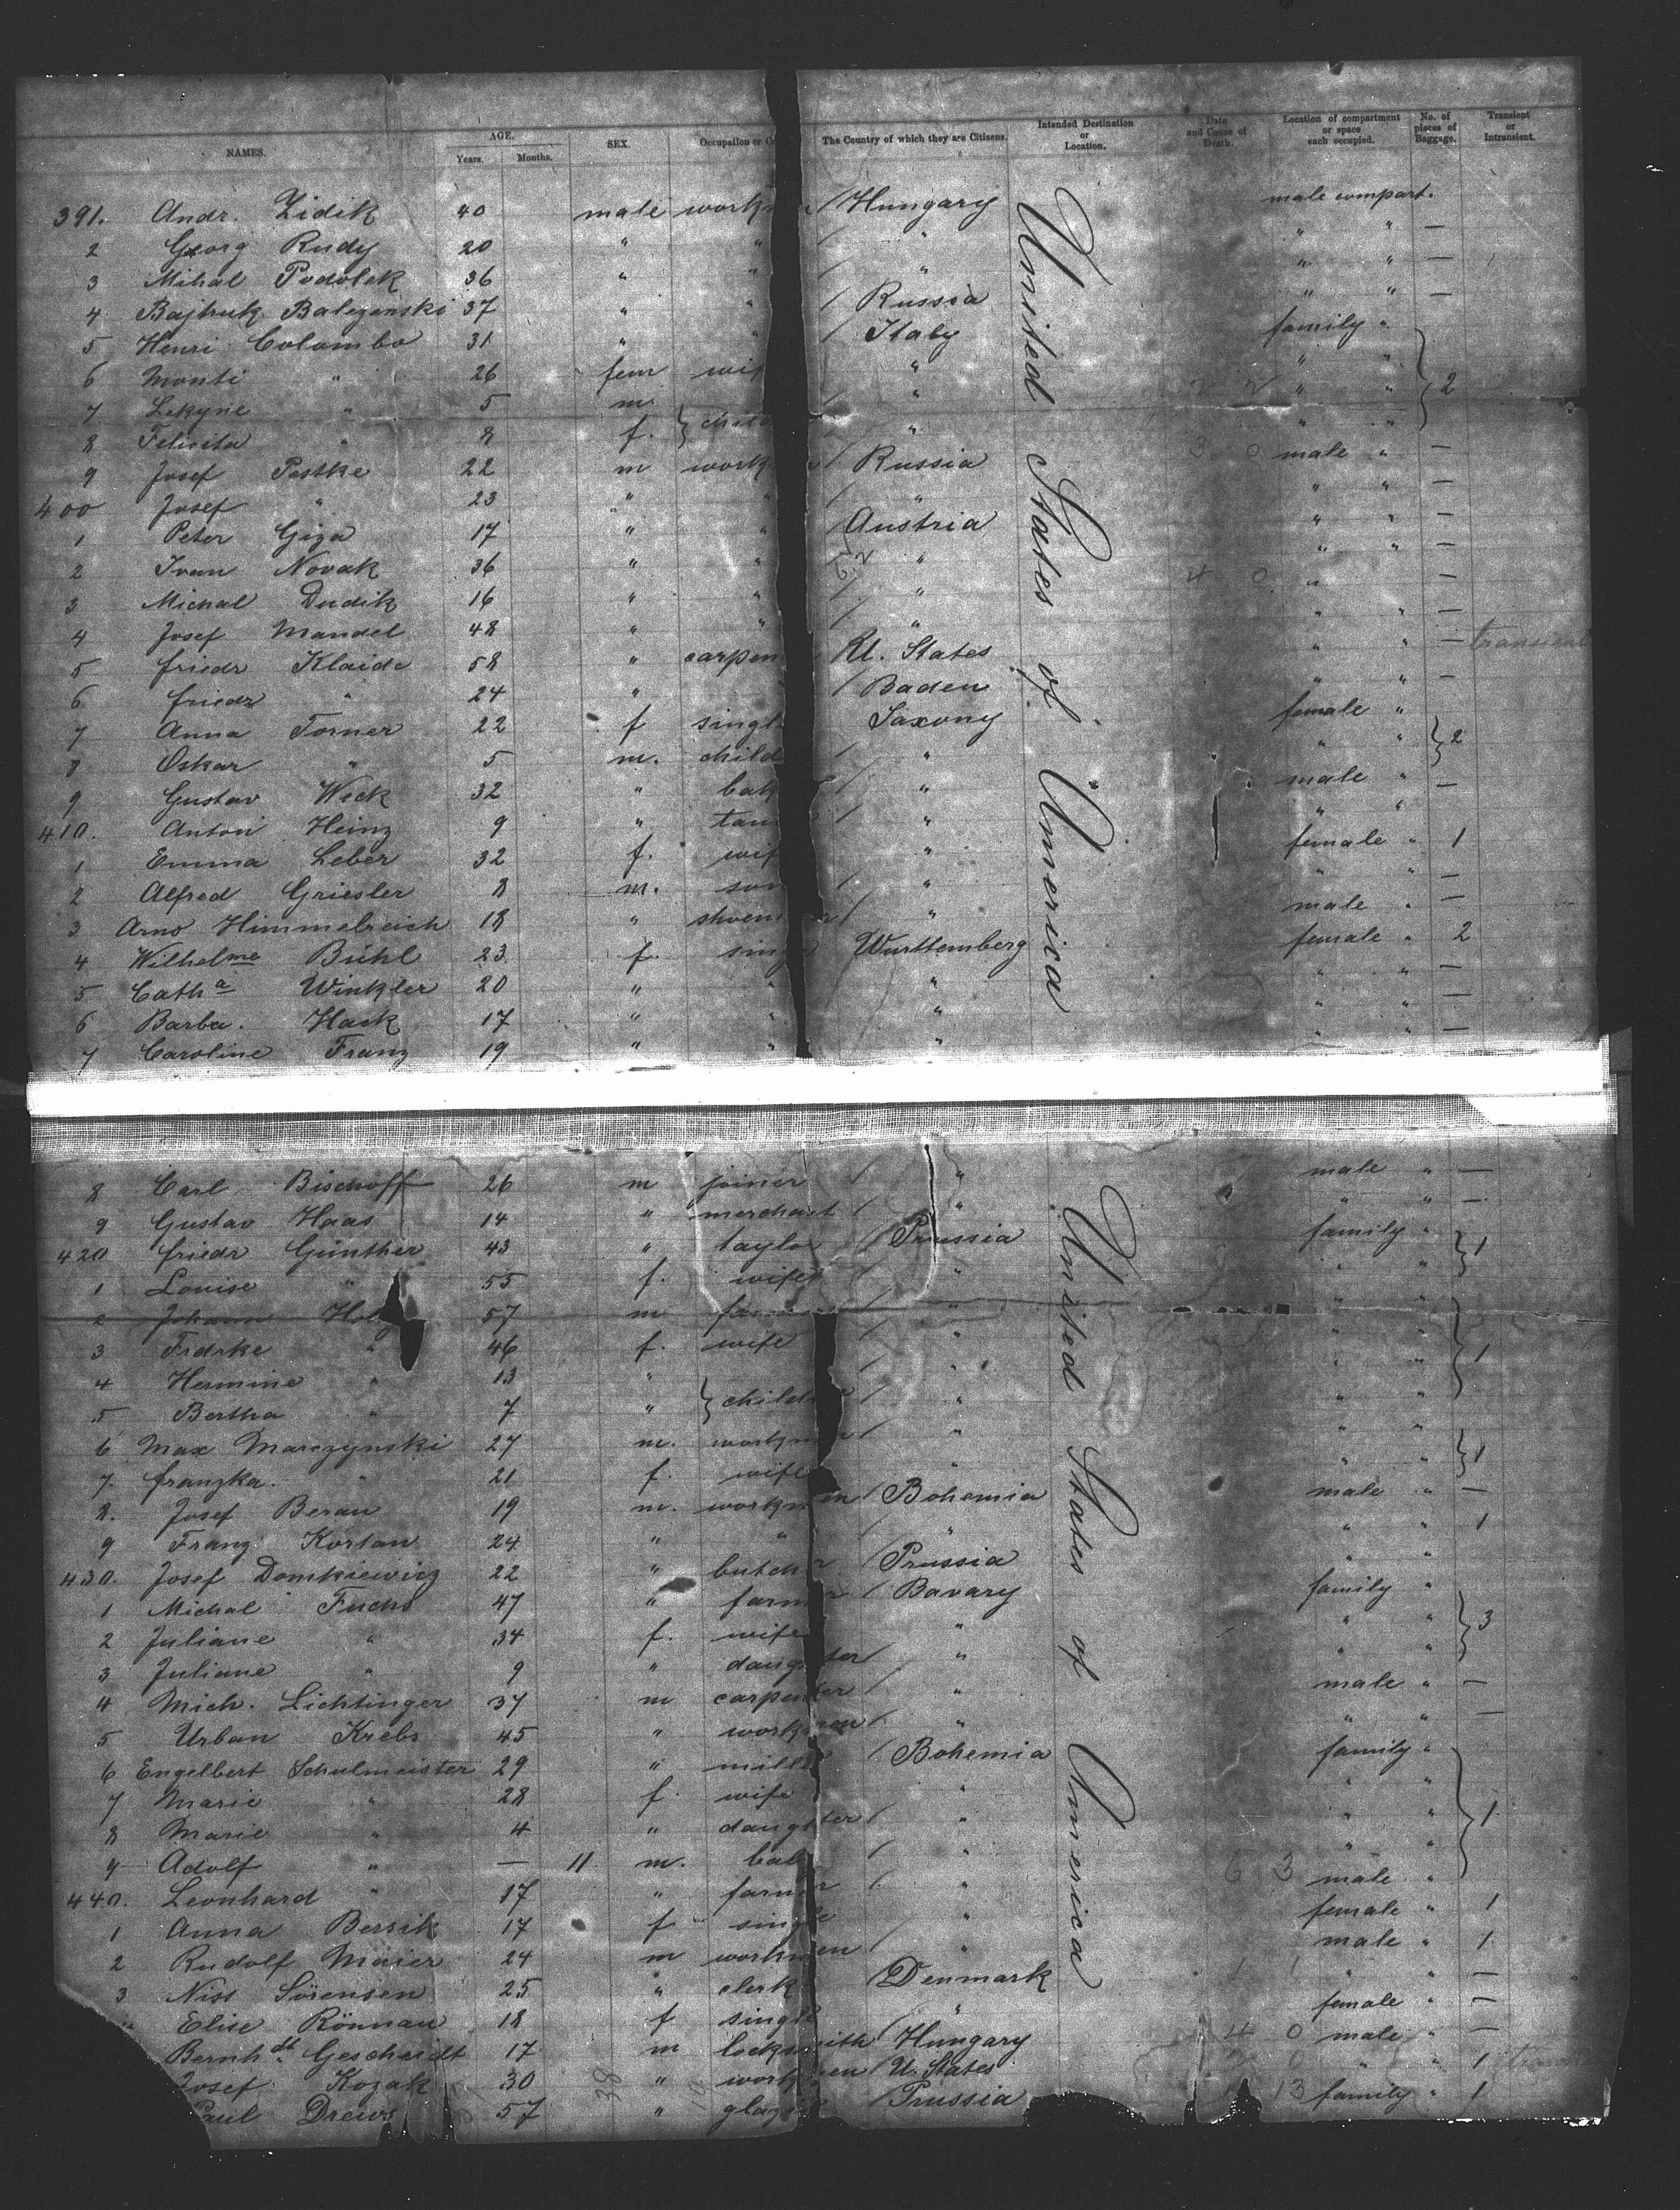 NAMES. AGE. Years. Months. SEX. Occupation or The Country of which they are Citizens. Intended Destination or Location. Date and Cause of Death. Location of compartment or space each occupied. No. of pieces of Baggage. Transient or Intransient.
391. Andr. Zidik 40 male work / Hungary male compart.
2 Georg Rudy 20 " " / " " " —
3 Mihal Podolek 36 " " / " " " —
4 Bajtruk Balezenski 37 " " / Russia " " —
5 Henri Colombo 31 " " / Italy family "
6 Monti " 26 fem wif " " "
7 Lekyne " 5 m. / " " " 2
8 Felicita " 8 f. } child / " " "
9 Josef Pestke 22 m work / Russia male " —
400 Josef " 23 " " / " " " —
1 Peter Giza 17 " " / Austria " " —
2 Ivan Novak 36 " " " " " —
3 Michal Dudik 16 " " / " " —
4 Josef Mandel 48 " " / " " " —
5 friedr Klaide 58 " carpen / U. States " " — transient
6 friedr " 24 " / Baden " " —
7 Anna Forner 22 f singl Saxony female "
8 Oskar " 5 m. child / " " " } 2
9 Gustav Weck 32 " bak / " male " —
410. Anton Heinz 9 " tan / " " "
1 Emma Leber 32 f. wif " female " 1
2 Alfred Griesler 8 m. son / " " " —
3 Arno Himmelreich 18 " shoem / " male " —
4 Wilhelme Bühl 23 f. sin Württemberg female " 2
5 Catha Winkler 20 " " " " " —
6 Barba. Hask 17 " " " " " —
7 Caroline Franz 19 " " " " " —
United States of America
8 Carl Bischoff 26 m joiner / " male " —
9 Gustav Haas 14 " merchant / " " " —
420 friedr Günther 43 " taylo / Prussia family "
1 Louise " 55 f. wife " " " } 1
2 Johann 57 m. / " "
3 Fridrke " 46 f. wife " " "
4 Hermine " 13 " / " " " 1
5 Bertha " 7 " } child / " " "
6 Max Marczynski 27 m. workm / " " "
7. franzka. " 21 f. wife " " " } 1
8. Josef Beran 19 m. workmen / Bohemia male " —
9 Franz Kortan 24 " " / " " " 1
430. Josef Domkiewicz 22 " butcher / Prussia " "
1 Michal Fuchs 47 " farmer / Bavary family "
2 Juliane " 34 f. wife " " " } 3
3 Juliane " 9 " daughter / " " "
4 Mich. Lichtinger 37 m carpenter / " male " —
5 Urban Krebs 45 " workmen / " " " —
6 Engelbert Schulmeister 29 " mill / Bohemia family "
7 Marie " 28 f. wife " " "
8 Marie " 4 " daughter / " " " } 1
9 Adolf " — 11 m. bab / " " "
440. Leonhard " 17 " farmer / " male "
1 Anna Bersik 17 f single " female " 1
2 Rudolf Maier 24 m workmen / " male " 1
3 Niss Sörensen 25 " clerk / Denmark " " —
Elise Rönnau 18 f single / " female " —
Bernhdt. Gescheidt 17 m locksmith / Hungary male " —
Josef Kozak 30 " workmen / U. States " " 1
Paul Drews 57 " glaz / Prussia family " 1
United States of America